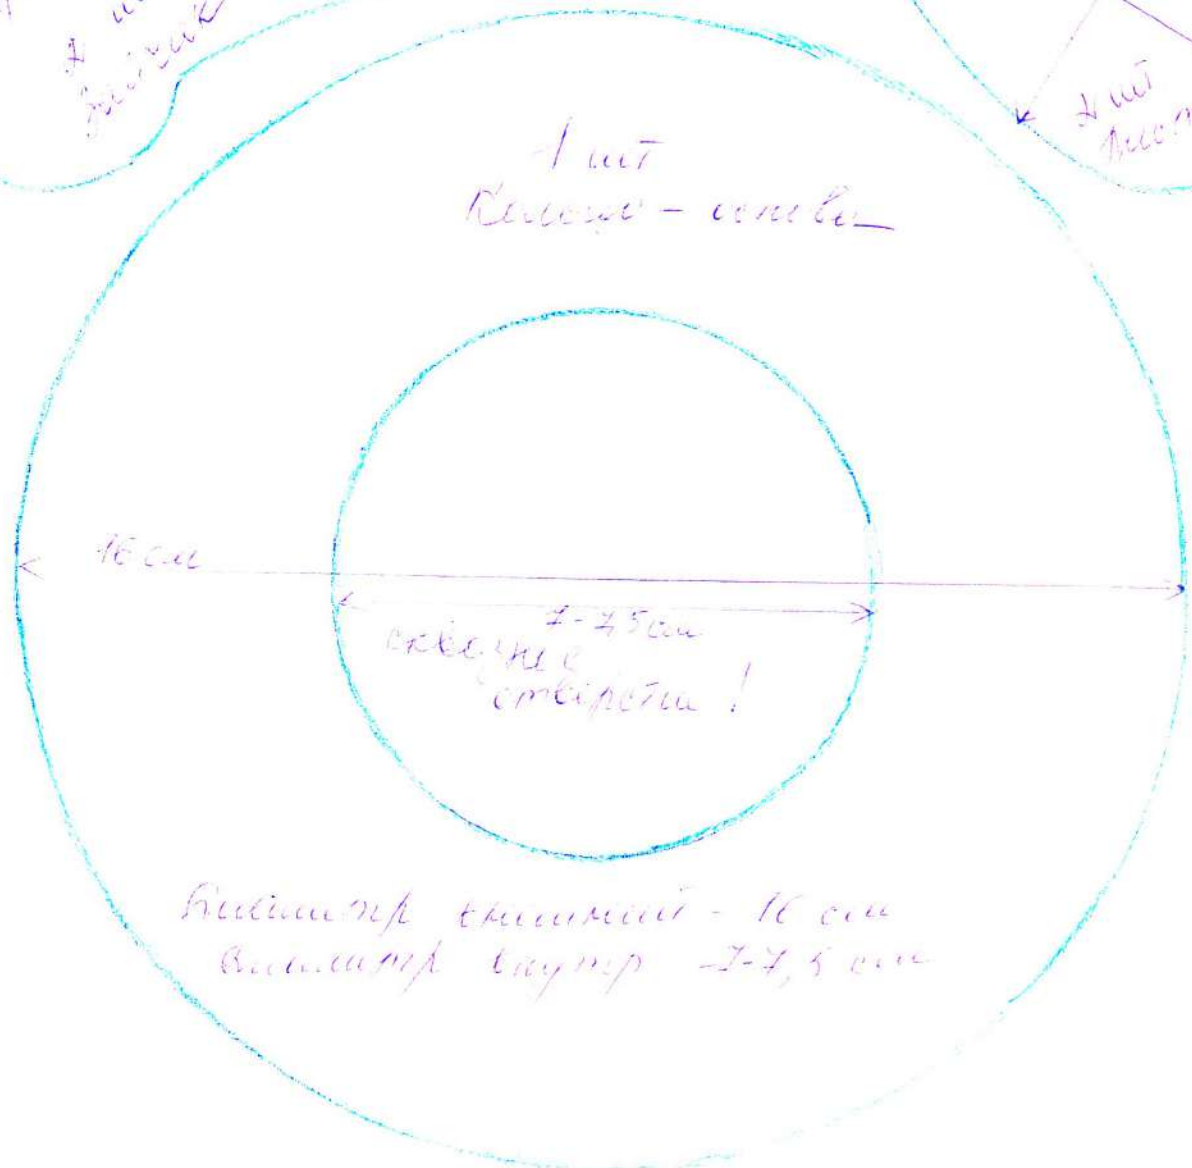 1 шт
Кольцо - основа
16 см
7-7,5 см
сквозное
отверстие!
Диаметр внешний - 16 см
Диаметр внутр - 7-7,5 см
шт